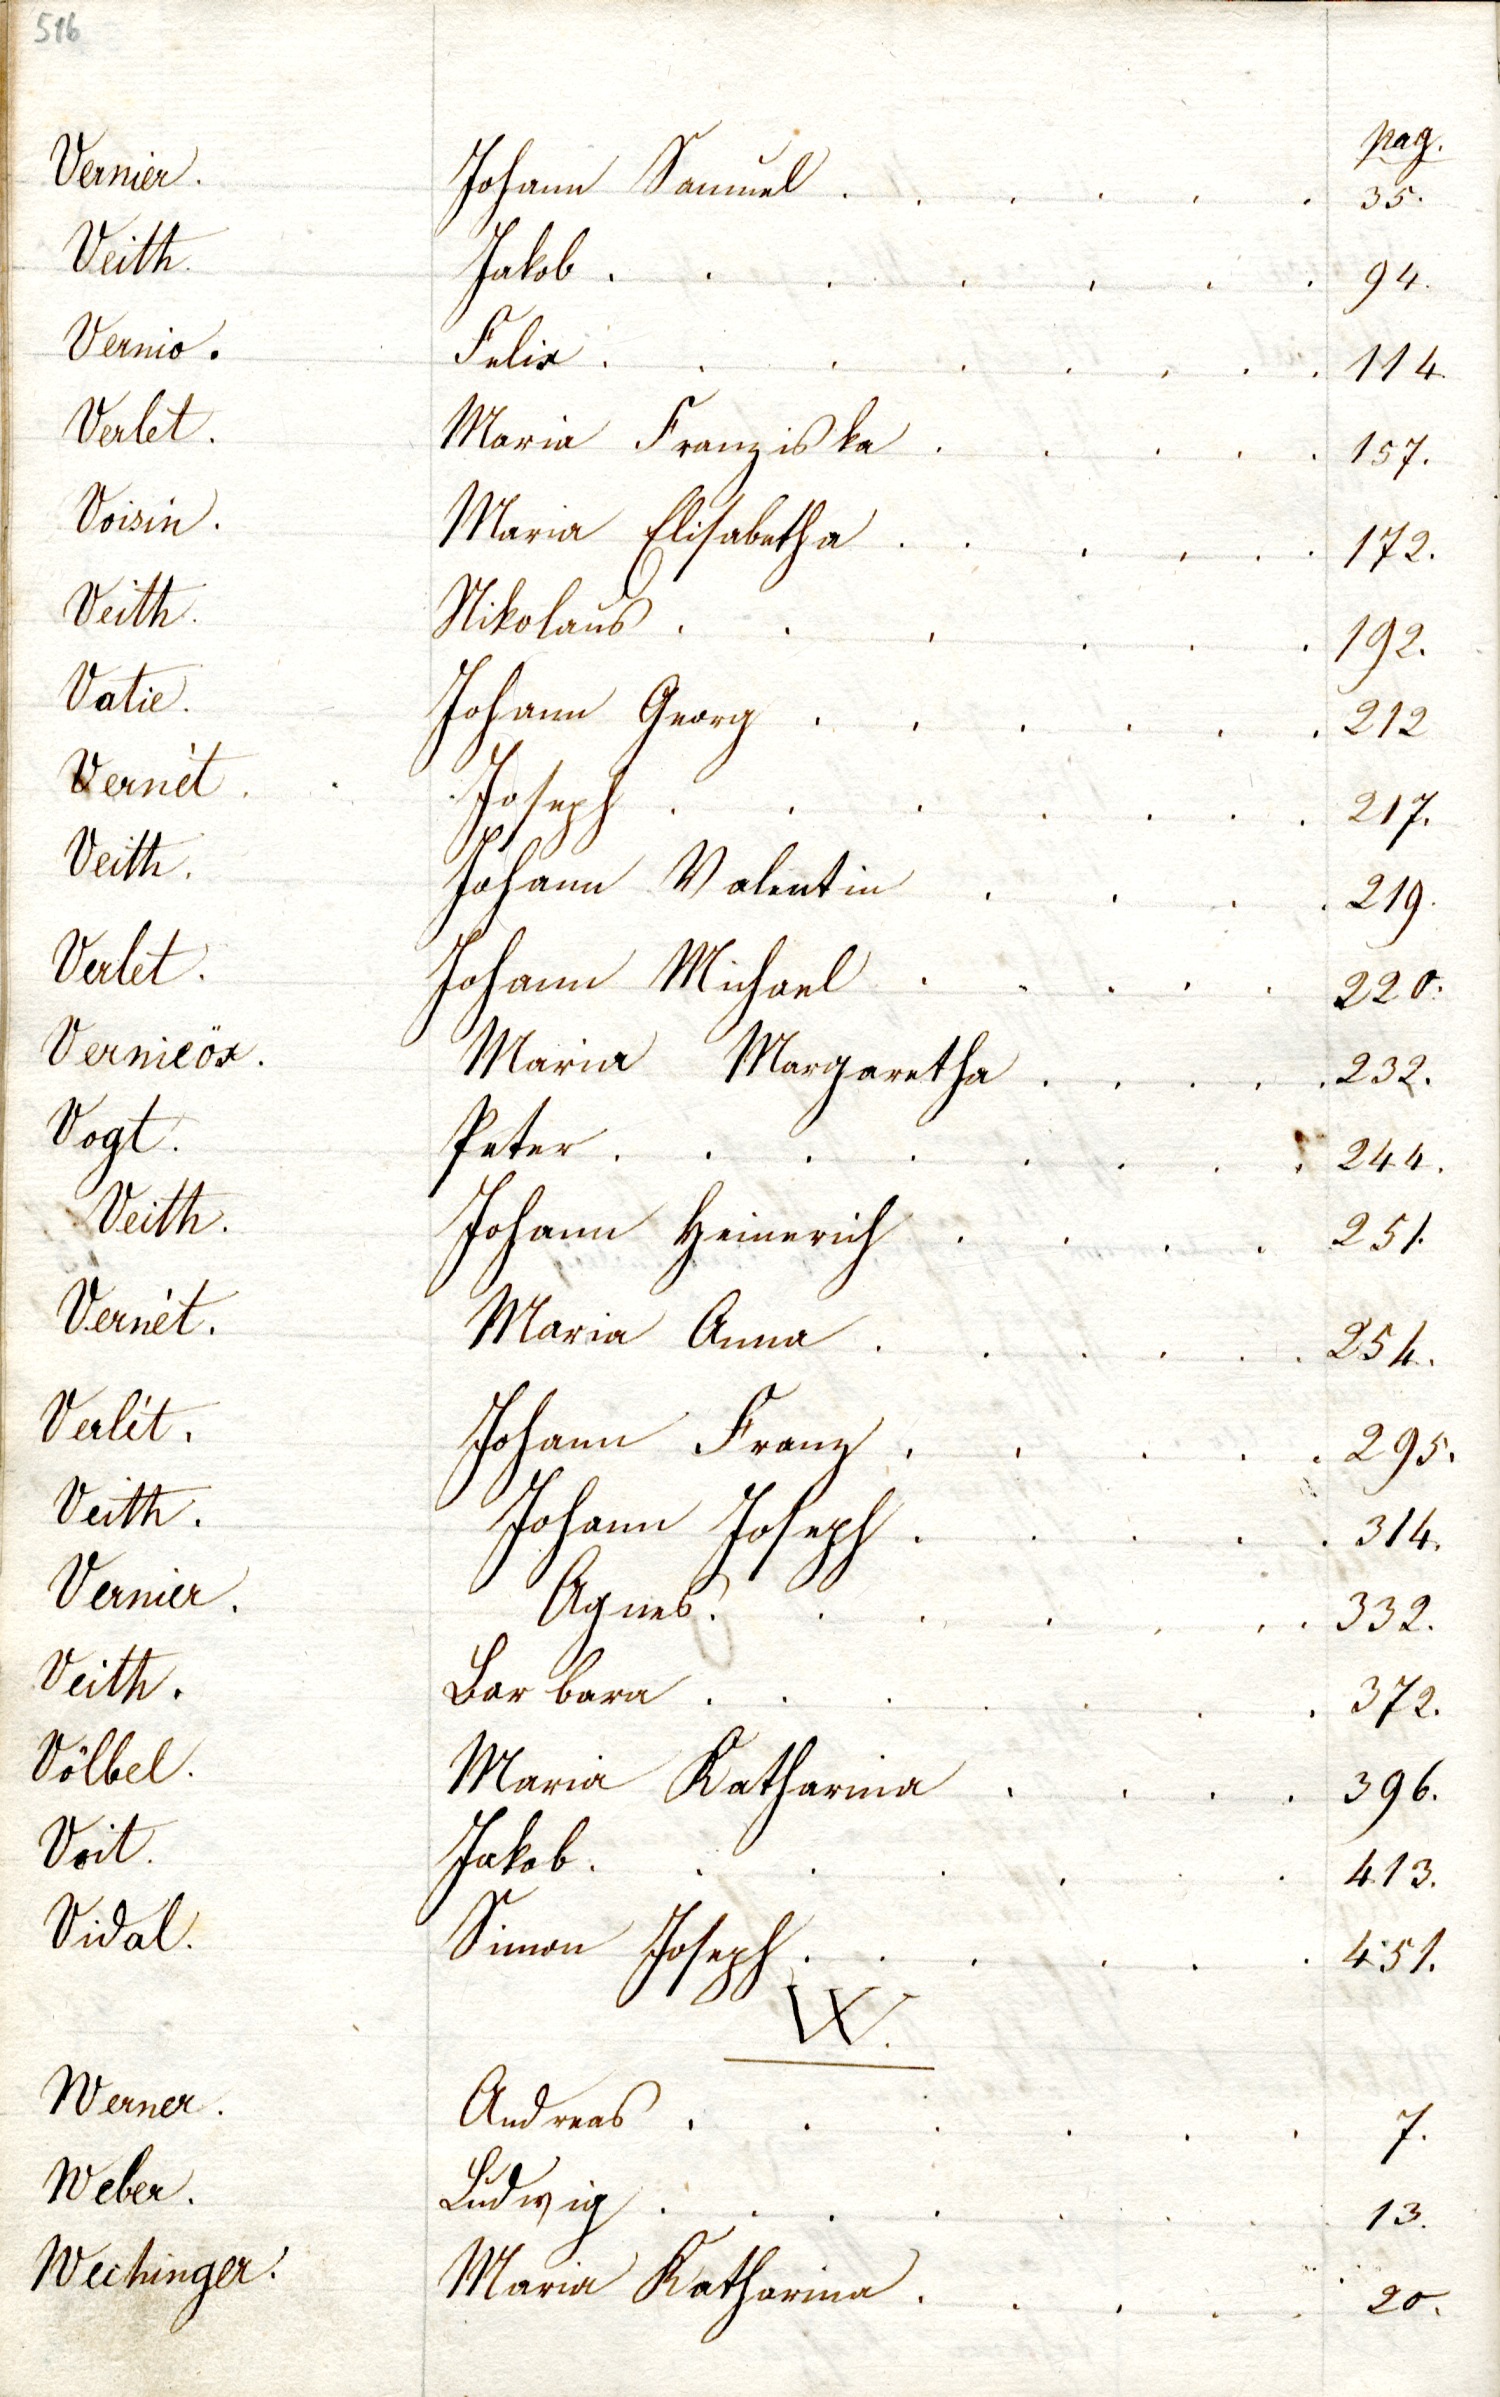 516
pag.
Vernier. Johann Samuel . . . . . . 35.
Veith. Jakob . . . . . . . 94.
Vernio. Felix . . . . . . . . 114.
Verlet. Maria Franziska . . . . . 157.
Voisin. Maria Elisabetha . . . . . . 172.
Veith. Nikolaus . . . . . . 192.
Vatie. Johann Georg . . . . . . 212
Vernét. Joseph . . . . . . . 217.
Veith. Johann Valentin . . . . 219.
Verlet. Johann Michael . . . . . 220.
Vernieöx. Maria Margaretha . . . . . 232.
Vogt. Peter . . . . . . . . 244.
Veith. Johann Heinerich . . . . 251.
Vernét. Maria Anna . . . . . . 254.
Verlét. Johann Franz . . . . . 295.
Veith. Johann Joseph . . . . . 314.
Vernier. Agnes . . . . . . . 332.
Veith. Barbara . . . . . . 372.
Völbel. Maria Katharina . . . . 396.
Voit. Jakob . . . . . . 413.
Vidal. Simon Joseph . . . . . . 451.
W.
Werner. Andreas . . . . . . 7.
Weber. Ludwig . . . . . . . 13.
Wechinger. Maria Katharina . . . . . 20.